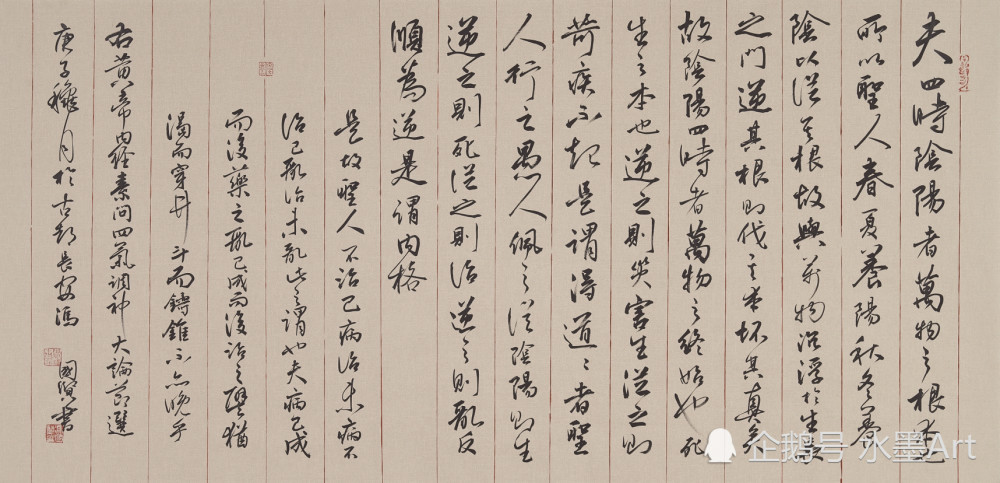 夫四時陰陽者萬物之根本也
所以聖人春夏養陽秋冬養
陰以從其根故與萬物沉浮於生長
之門逆其根則伐其本壞其真矣
故陰陽四時者萬物之終始也死
生之本也逆之則災害生從之則
苛疾不起是謂得道〻者聖
人行之愚人佩之從陰陽則生
逆之則死從之則治逆之則亂反
順為逆是謂内格
是故聖人不治已病治未病不
治已亂治未亂此之謂也夫病已成
而後藥之亂已成而後治之譬猶
渴而穿井斗而鑄錐不亦晚乎
右黃帝内經素問四氣調神大論節選
庚子穐月於古都長安馮國賢書
企鹅号 水墨Art